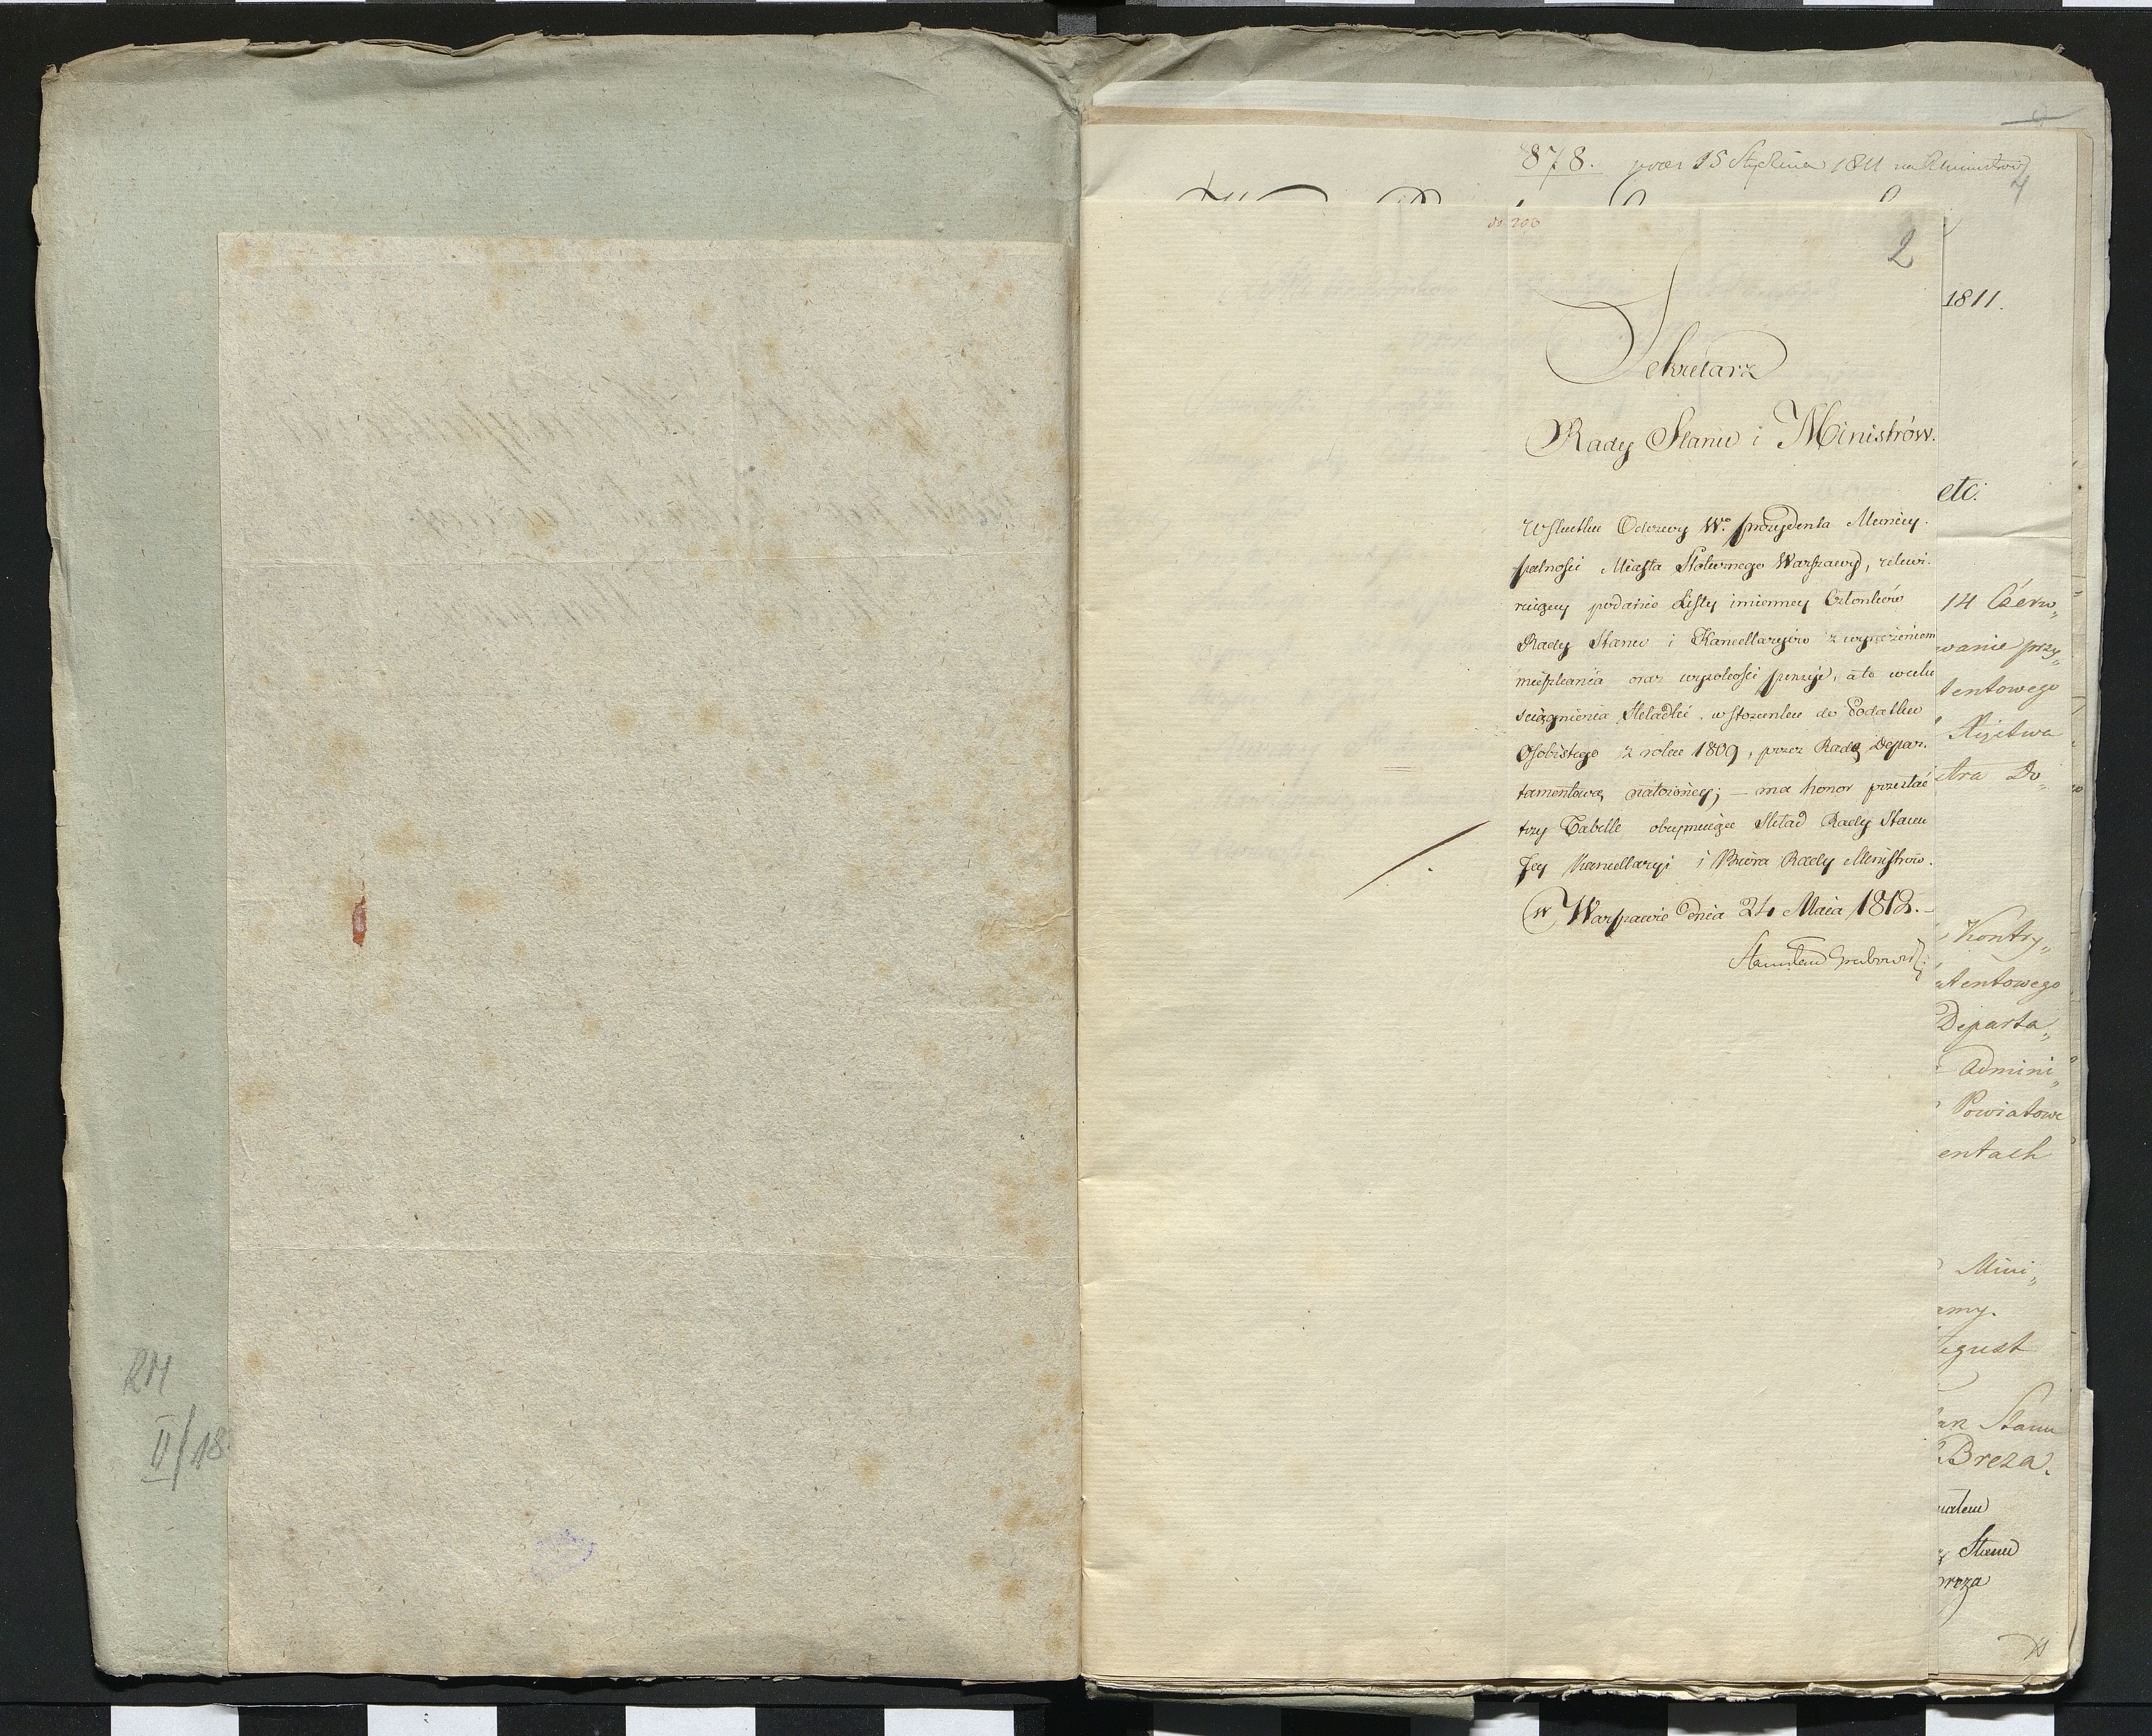 878. prez 15 Stycznia 1811 na
4
do 200
2
Sekretarz
Rady Stanu i Ministrów.
W skutku Odezwy W.º Prezydenta Municy-
palnosci Miasta Stołecznego Warszawy, rekwi-
ruiącey podanie Listy imienney Członków
Rady Stanu i Kancellaryiów z wyrażeniem
mieszkania oraz wysokości pensyi, a to w celu
sciągnienia Składki w stosunku do Podatku
Osobistego z roku 1809, przez Radę Depar-
tamentową nałożoney; – ma honor przesłać
trzy Tabelle obeymuiące Skład Rady Stanu
Jey Kancellaryi i Biura Rady Ministrów.
w Warszawie dnia 24 Maia 1812.
Stanisław Grabowski
1811.
etc.
14 Czerw„
wanie przy„
tentowego
Xięstwa
stra Do„
Kontry„
atentowego
Departa„
Admini„
Powiatowe
entach
Mini„
amy.
ugust
Stanu
Breza.
Stanu
RM
II/18